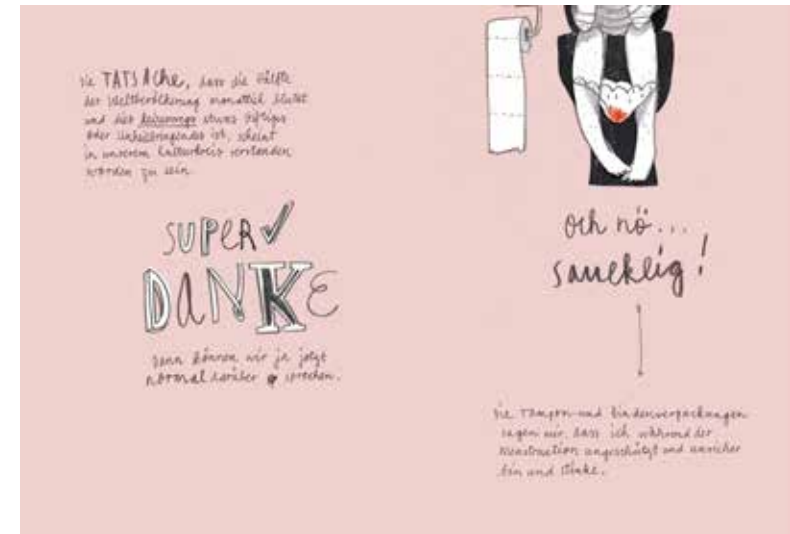 Die TATSAche, dass die Hälfte
der Weltbevölkerung monatlich blutet
und dies keineswegs etwas Giftiges
oder Unheilbringendes ist, scheint
in unserem Kulturkreis verstanden
worden zu sein.
SUPER
DANKE
Dann können wir ja jetzt
normal darüber sprechen.
och nö...
saueklig!
Die Tampon- und Bindenverpackungen
sagen mir, dass ich während der
Menstruation ungeschützt und unsicher
bin und stinke.